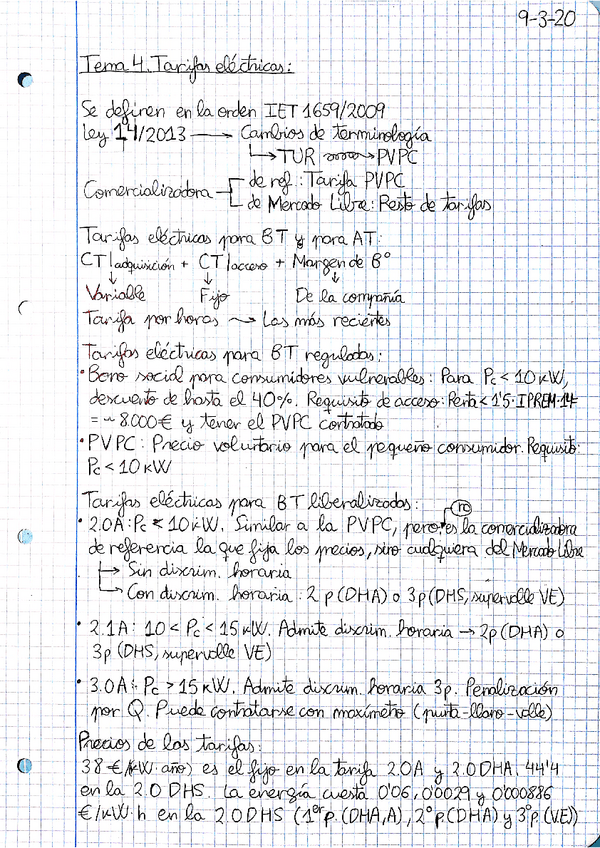 9-3-20
Tema 4. Tarifas eléctricas:
Se definen en la orden IET 1659/2009
Ley 14/2013 → Cambios de terminología
↳ TUR → PVPC
Comercializadora
de ref.: Tarifa PVPC
de Mercado Libre: Resto de tarifas
Tarifas eléctricas para BT y para AT:
CT|adquisición + CT|acceso + Margen de Bº
↓ ↓ ↓
Variable Fijo De la compañía
Tarifa por horas → Las más recientes
Tarifas eléctricas para BT reguladas:
• Bono social para consumidores vulnerables: Para Pc < 10 kW,
descuento de hasta el 40%. Requisito de acceso: Renta < 1'5·IPREM·14
= ~ 8.000€ y tener el PVPC contratado
• PVPC: Precio voluntario para el pequeño consumidor. Requisito:
Pc < 10 kW
Tarifas eléctricas para BT liberalizadas:
no
• 2.0A: Pc < 10 kW. Similar a la PVPC, pero es la comercializadora
de referencia la que fija los precios, sino cualquiera del Mercado Libre
→ Sin discrim. horaria
→ Con discrim. horaria: 2p (DHA) o 3p (DHS, supervalle VE)
• 2.1A: 10 < Pc < 15 kW. Admite discrim. horaria → 2p (DHA) o
3p (DHS, supervalle VE)
• 3.0A: Pc > 15 kW. Admite discrim. horaria 3p. Penalización
por Q. Puede contratarse con maxímetro (punta-llano-valle)
Precios de las tarifas:
38 €/(kW·año) es el fijo en la tarifa 2.0A y 2.0DHA. 44'4
en la 2.0 DHS. La energía cuesta 0'06, 0'0029 y 0'000886
€/kW·h en la 2.0DHS (1er p (DHA,A), 2º p (DHA) y 3º p (VE))